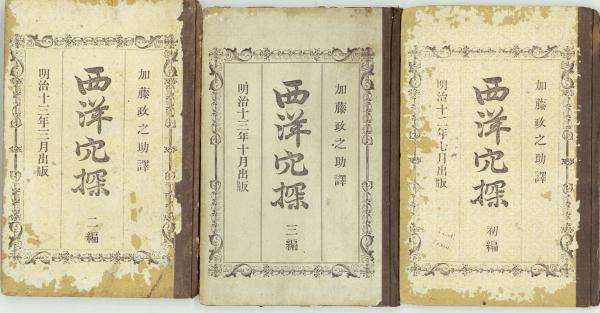 加藤政之助譯
西洋穴探
初編
明治十二年七月出版
加藤政之助譯
西洋穴探
三編
明治十三年十月出版
加藤政之助譯
西洋穴探
二編
明治十三年三月出版